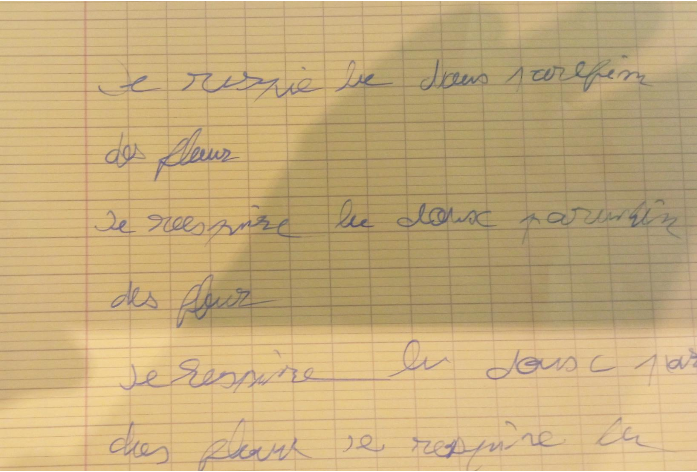 Je respie le doux parfum
des fleur
Je respire le doux parumfin
des fleur
Je respire le doux par
des fleur je respire le